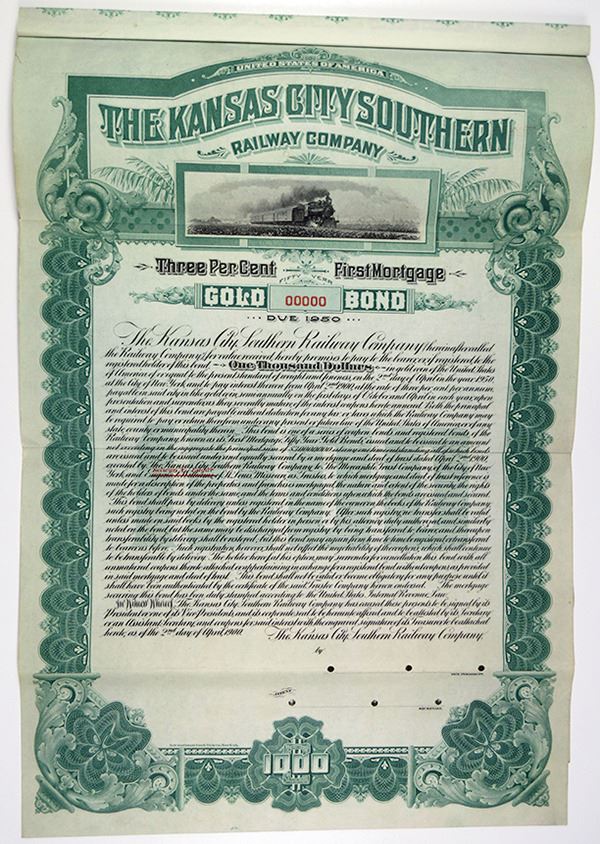 UNITED STATES OF AMERICA
THE KANSAS CITY SOUTHERN
RAILWAY COMPANY
Three Per Cent First Mortgage
FIFTY YEAR
GOLD 00000 BOND
DUE 1950
The Kansas City Southern Railway Company, hereinafter called
the Railway Company, for value received, hereby promises to pay to the bearer, or if registered, to the
registered holder of this bond One Thousand Dollars in gold coin of the United States
of America of or equal to the present standard of weight and fineness, on the 2nd day of April in the year 1950,
at the City of New York, and to pay interest thereon from April 2nd 1900, at the rate of three per cent per annum
payable in said city in like gold coin, semi-annually on the first days of October and April in each year, upon
presentation and surrender as they severally mature of the interest coupons hereto annexed. Both the principal
and interest of this bond are payable without deduction for any tax or taxes which the Railway Company may
be required to pay or retain therefrom under any present or future law of the United States of America or of any
state, county or municipality therein. This bond is one of a series of coupon bonds and registered bonds of the
Railway Company, known as its First Mortgage Fifty Year Gold Bonds, issued and to be issued to an amount
not exceeding in the aggregate the principal sum of
executed by The Kansas City Southern Railway Company, to The Mercantile Trust Company, of the City of New
York, and of St. Louis, Missouri, as Trustees, to which mortgage and deed of trust reference is
made for a description of the properties and franchises mortgaged, the nature and extent of the security, the rights
of the holders of bonds under the same, and the terms and conditions upon which the bonds are issued and secured.
This bond shall pass by delivery unless registered in the name of the owner on the books of the Railway Company
such registry being noted on the bond by the Railway Company. After such registry no transfer shall be valid
unless made on said books by the registered holder in person or by his attorney duly authorized, and similarly
noted on the bond, but the same may be discharged from registry by being transferred to bearer, and thereupon
transferability by delivery shall be restored, but this bond may again from time to time be registered or transferred
to bearer as before. Such registration, however, shall not affect the negotiability of the coupons, which shall continue
to be transferable by delivery. The holder hereof at his option may surrender for cancellation this bond with all
unmatured coupons thereto attached in exchange for a registered bond without coupons as provided
in said mortgage and deed of trust. This bond shall not be valid or become obligatory for any purpose until it
shall have been authenticated by the certificate of the said Trustee Company hereon endorsed. The mortgage
securing this bond has been duly stamped according to the United States Internal Revenue Law.
In Witness Whereof, The Kansas City Southern Railway Company has caused these presents to be signed by its
President or one of its Vice Presidents, and its corporate seal to be hereunto affixed and to be attested by its Secretary
or an Assistant Secretary, and coupons for said interest with the engraved signature of its Treasurer to be attached
hereto, as of the 2nd day of April, 1900.
The Kansas City Southern Railway Company,
by
VICE PRESIDENT.
ATTEST
SECRETARY.
1000